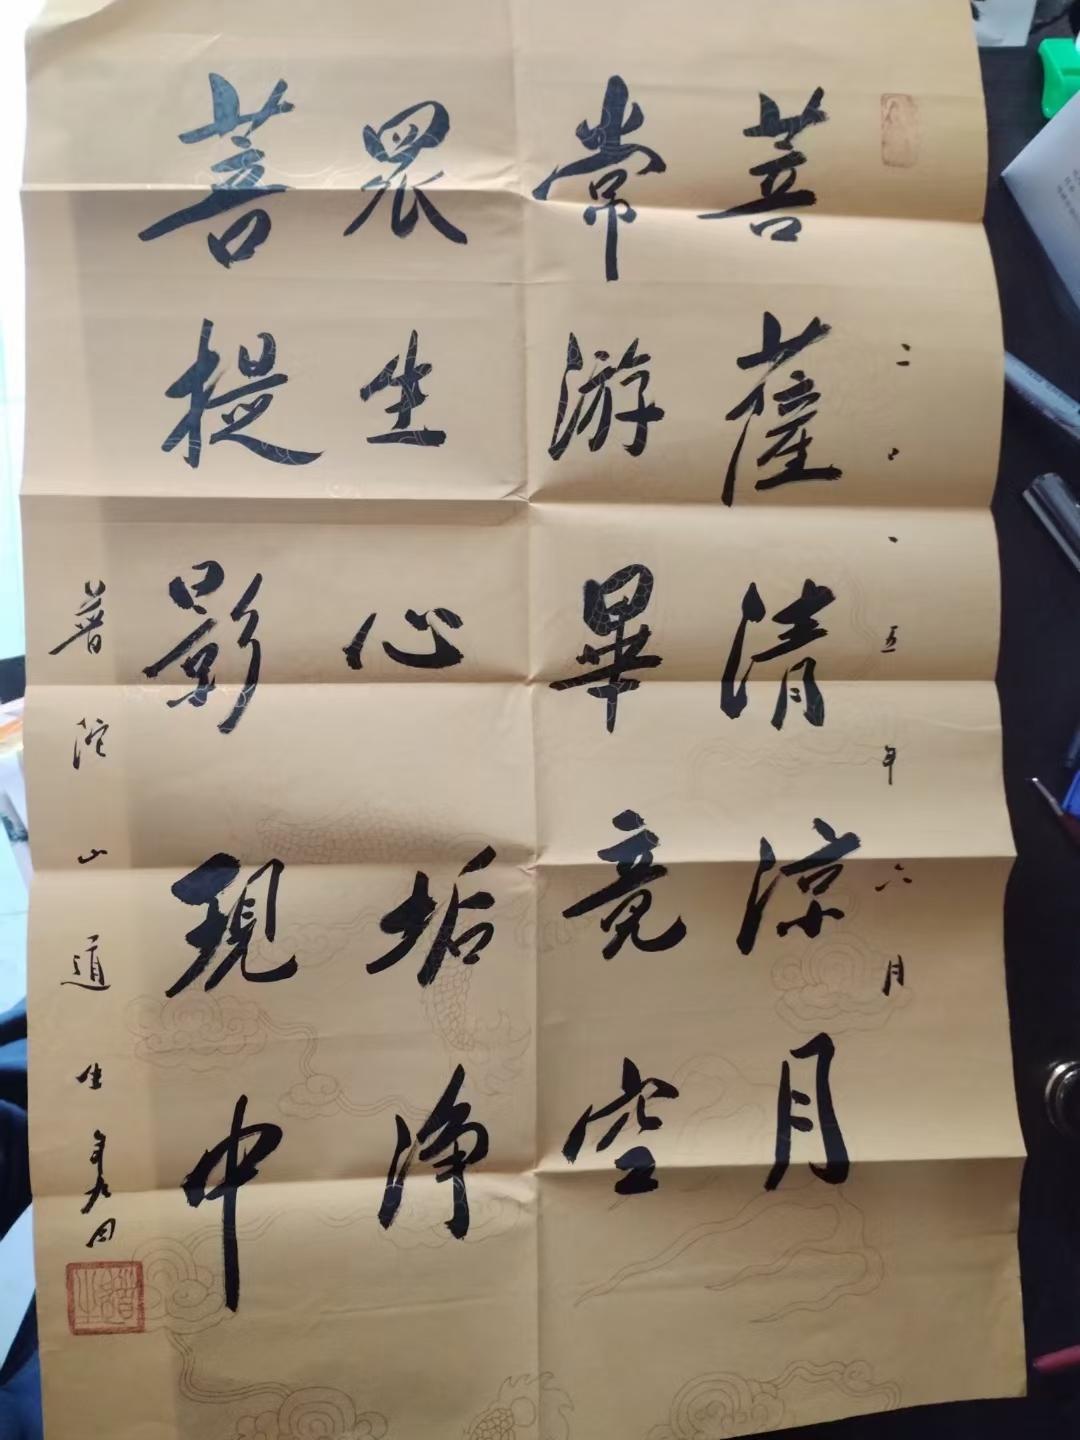 二〇一五年六月
菩薩清涼月
常游畢竟空
眾生心垢淨
菩提影現中
普陀山道生